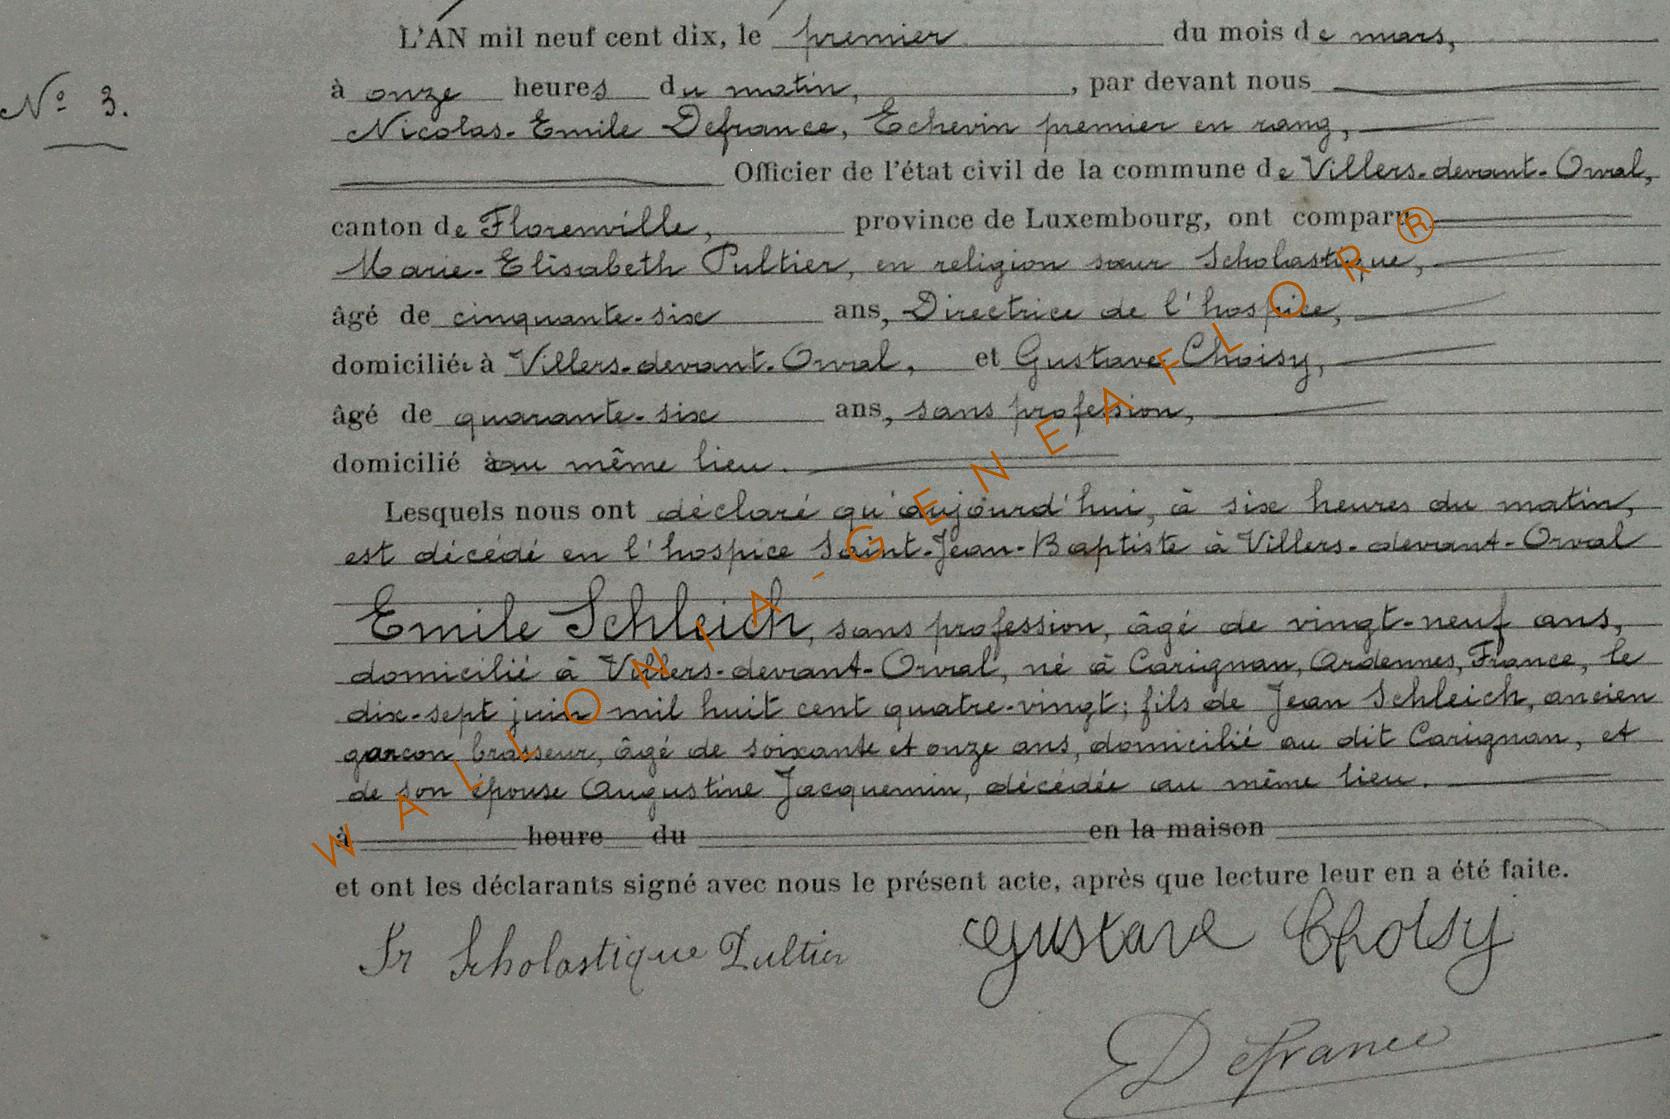 L'AN mil neuf cent dix, le premier du mois de mars,
N° 3.
à onze heures du matin, , par devant nous
Nicolas-Emile Defrance, Echevin premier en rang,
Officier de l'état civil de la commune de Villers-devant-Orval,
canton de Florenville, province de Luxembourg, ont comparu
Marie-Elisabeth Pultier, en religion sœur Scholastique,
âgé de cinquante-six ans, Directrice de l'hospice,
domiciliée à Villers-devant-Orval, et Gustave Choisy,
âgé de quarante-six ans, sans profession,
domicilié au même lieu.
Lesquels nous ont déclaré qu'aujourd'hui, à six heures du matin,
est décédé en l'hospice Saint-Jean-Baptiste à Villers-devant-Orval
Emile Schleich, sans profession, âgé de vingt-neuf ans,
domicilié à Villers-devant-Orval, né à Carignan, Ardennes, France, le
dix-sept juin mil huit cent quatre-vingt; fils de Jean Schleich, ancien
garçon brasseur, âgé de soixante et onze ans, domicilié au dit Carignan, et
de son épouse Augustine Jacquemin, décédée au même lieu.
à heure du en la maison
et ont les déclarants signé avec nous le présent acte, après que lecture leur en a été faite.
Sr Scholastique Pultier Gustave Choisy
Defrance
WALLONIA-GENEAFLORR®